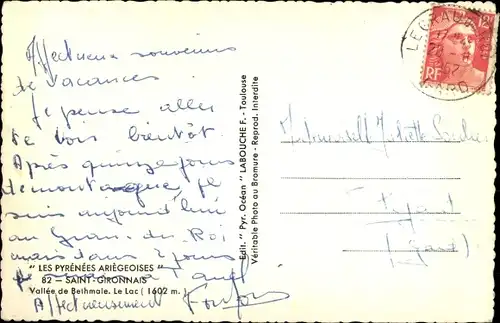 Affectueux souvenirs
de vacances
Je pense aller
te voir bientôt
Après quinze jours
de montagne, je
suis aujourd'hui
au Grau du Roi
mais dans 2 jours
Affectueusement
"LES PYRÉNÉES ARIÉGEOISES"
82 — SAINT-GIRONNAIS
Vallée de Bethmale. Le Lac (1602 m.)
Edit. "Pyr. Océan" LABOUCHE F. - Toulouse
Véritable Photo au Bromure - Reprod. Interdite
RF
12
GARD
Mademoiselle Juliette
(Gard)